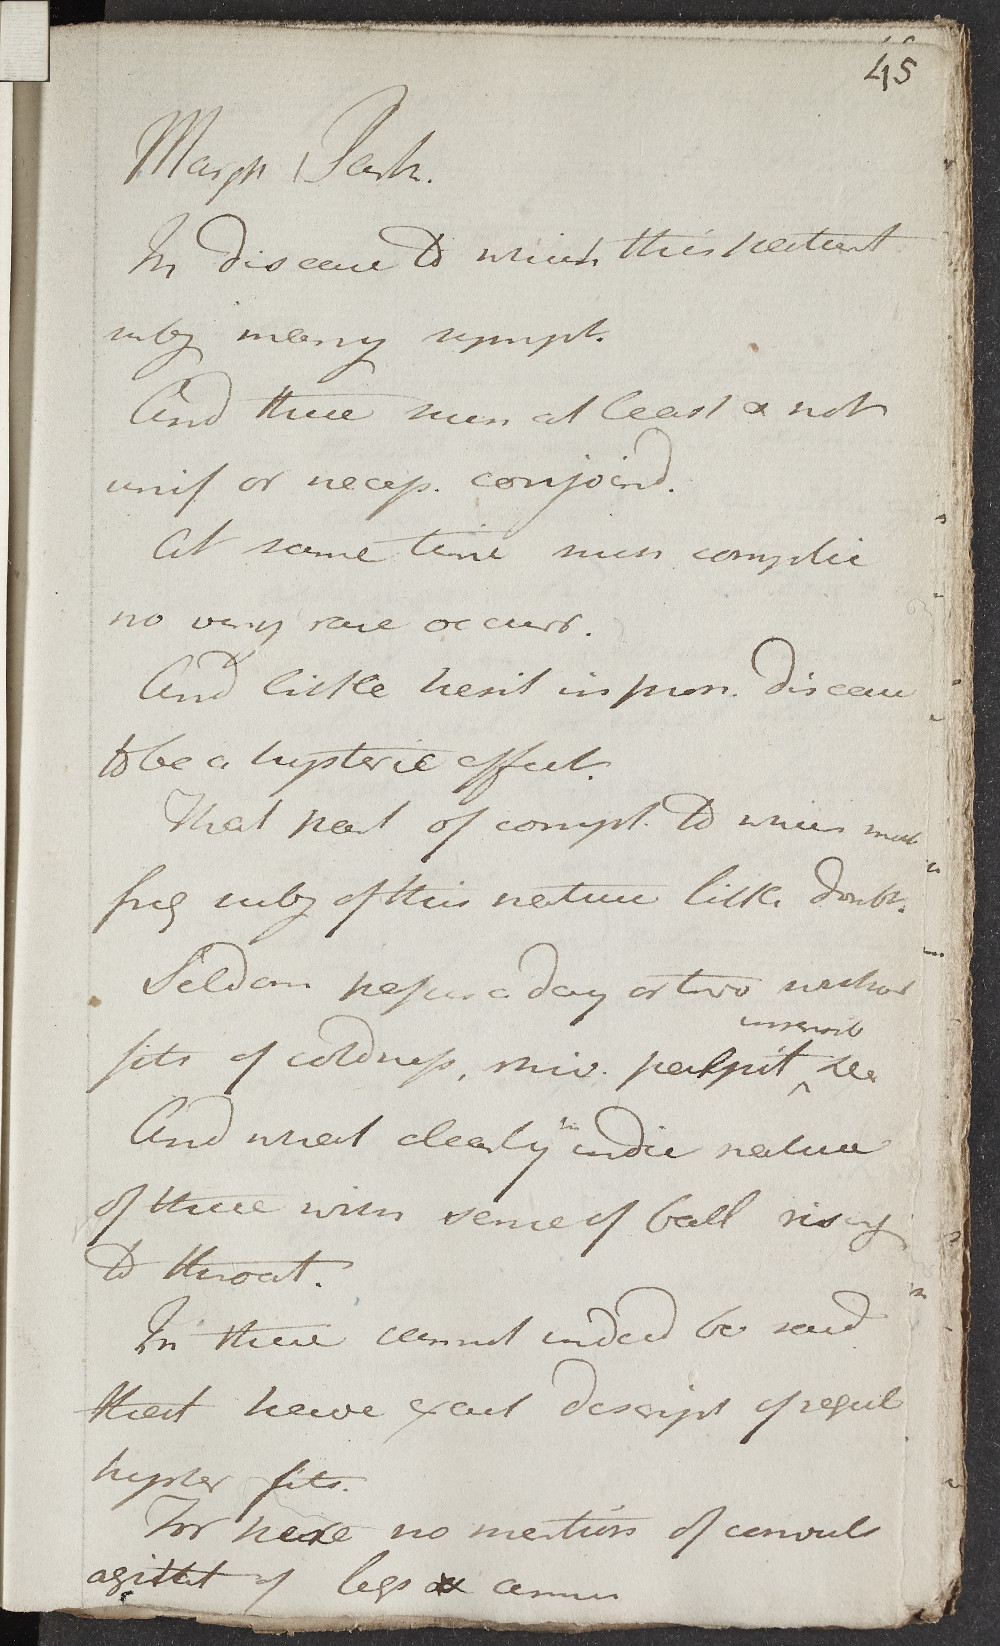 45
Margt Park.
In disease to which this patient
subj many sympt.
And these num at least & not
unif or necess. conjoind.
At same time such complic
no very rare occurr.
And little hesit in pron. disease
to be a hysteric affect.
That part of compt. to which most
freq subj of this nature little doubt.
Seldom passes a day or two without
insensib
fits of coldness, shiv. palpit ^ &c
And what clearly indic nature
of these with sense of ball rising
to throat.
In these cannot indeed be said
that have exact descript of regul
hyster fits.
For here no mention of convuls
agitat of legs & arms